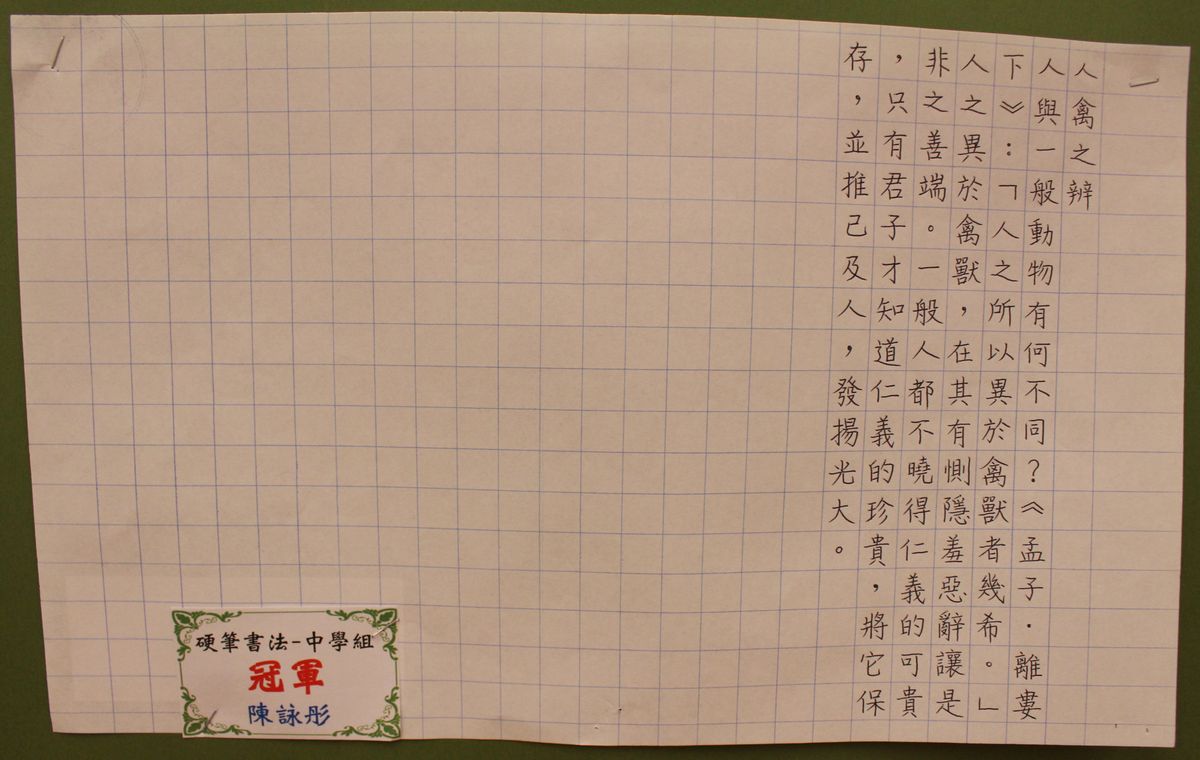 人禽之辨
人與一般動物有何不同？《孟子．離婁
下》：「人之所以異於禽獸者幾希。」
人之異於禽獸，在其有惻隱羞惡辭讓是
非之善端。一般人都不曉得仁義的可貴
，只有君子才知道仁義的珍貴，將它保
存，並推己及人，發揚光大。
硬筆書法-中學組
冠軍
陳詠彤